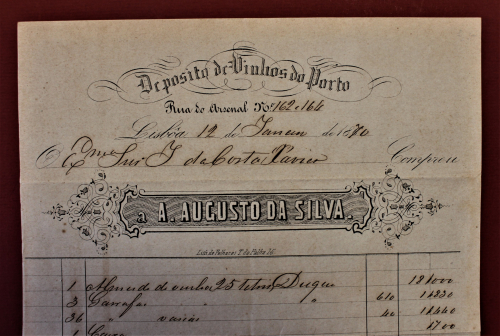 Deposito de Vinhos do Porto
Rua do Arsenal Nos. 162 e 164
Lisboa 12 de Janero de 1870
O Exmo Snr J da Costa Xavier Comprou
a A. AUGUSTO DA SILVA.
Lith. de Palhares T. da Palha
1 de vinho 25 Duque 18$000
3 Garrafas " " 610 1$830
36 " vazias 40 1$440
1 Caixa $700